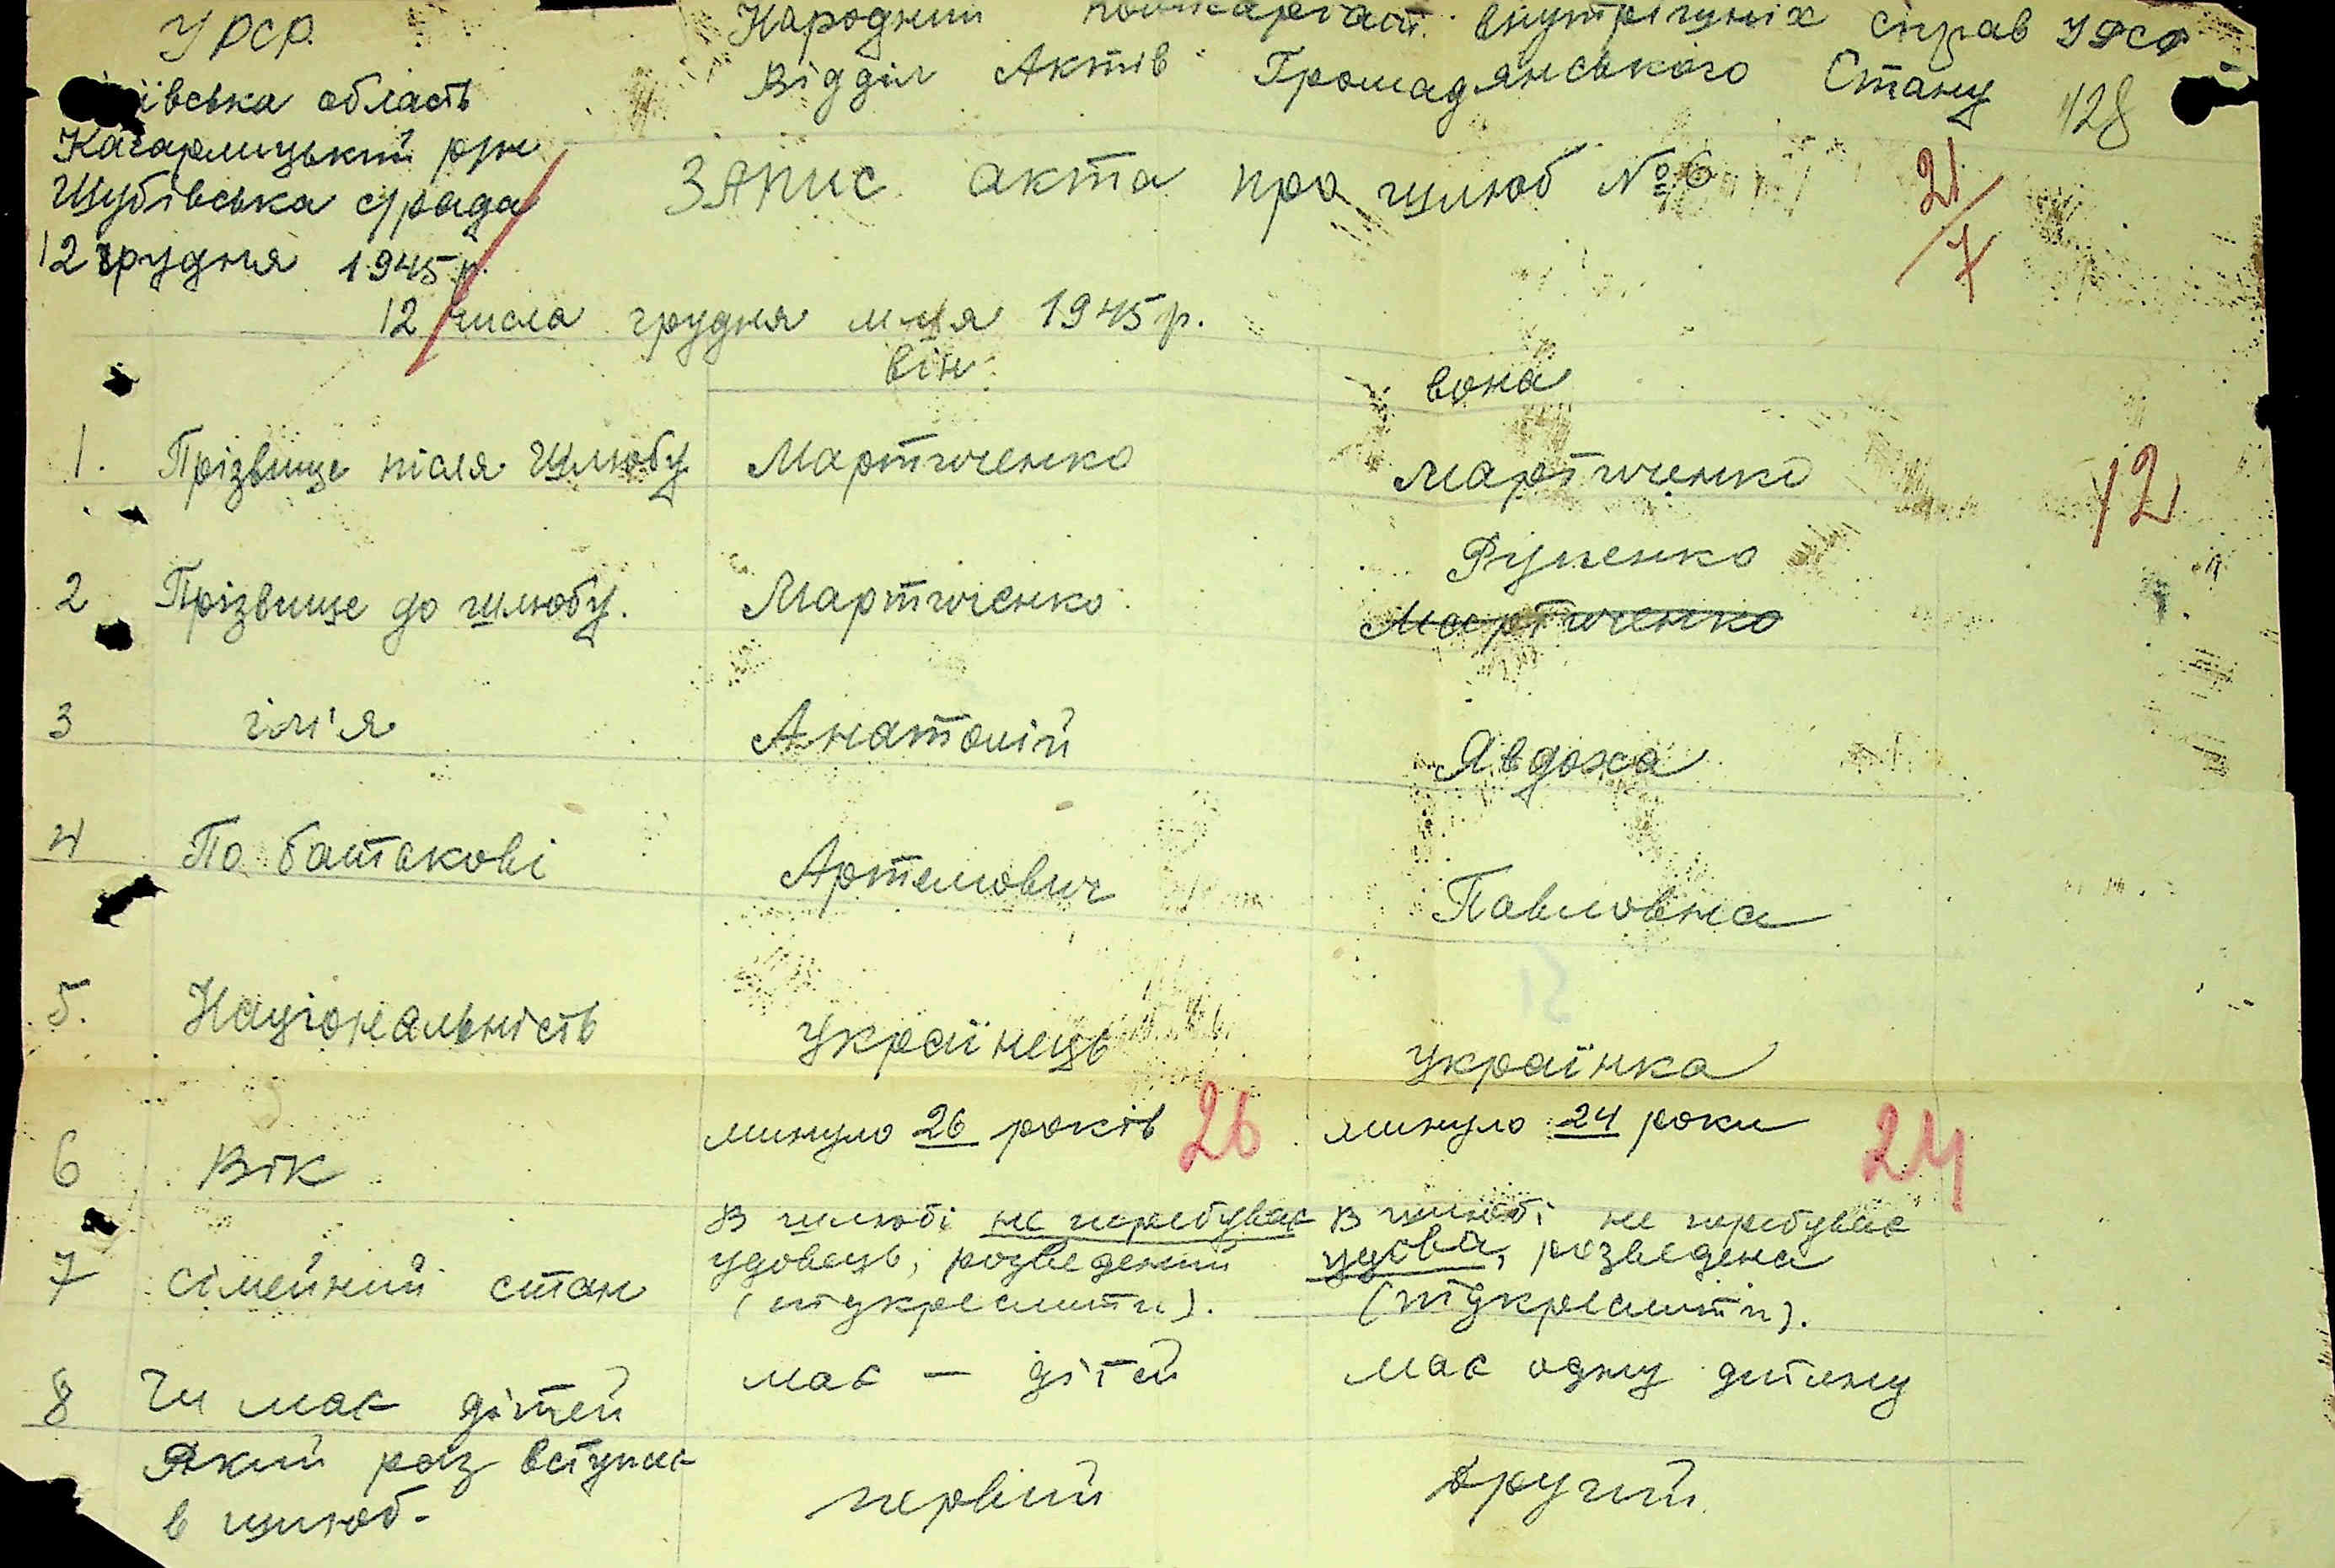 УРСР
Народний комісаріат внутрішніх справ УРСР
Відділ Актів Громадянського Стану
128
ївська область
Кагарлицький р-н
Шубівська с/рада
12 грудня 1945 р.
Запис акта про шлюб № 6
21/7
12 числа грудня м-ця 1945 р.
він
вона
1. Прізвище після шлюбу Мартиченко Мартиченко
12
Рупенко
2 Прізвище до шлюбу. Мартиченко Мартиченко
3 ім'я Анатолій Явдоха
4 По батькові Артемович Павловна
5. Національність Українець Українка
6 Вік минуло 26 років 26 минуло 24 роки 24
В шлюбі не перебуває В шлюбі не перебуває
удовець, розведений удова, розведена
7 сімейний стан (підкреслити). (підкреслити).
8 Чи має дітей має — дітей має одну дитину
Який раз вступає
в шлюб. первий другий